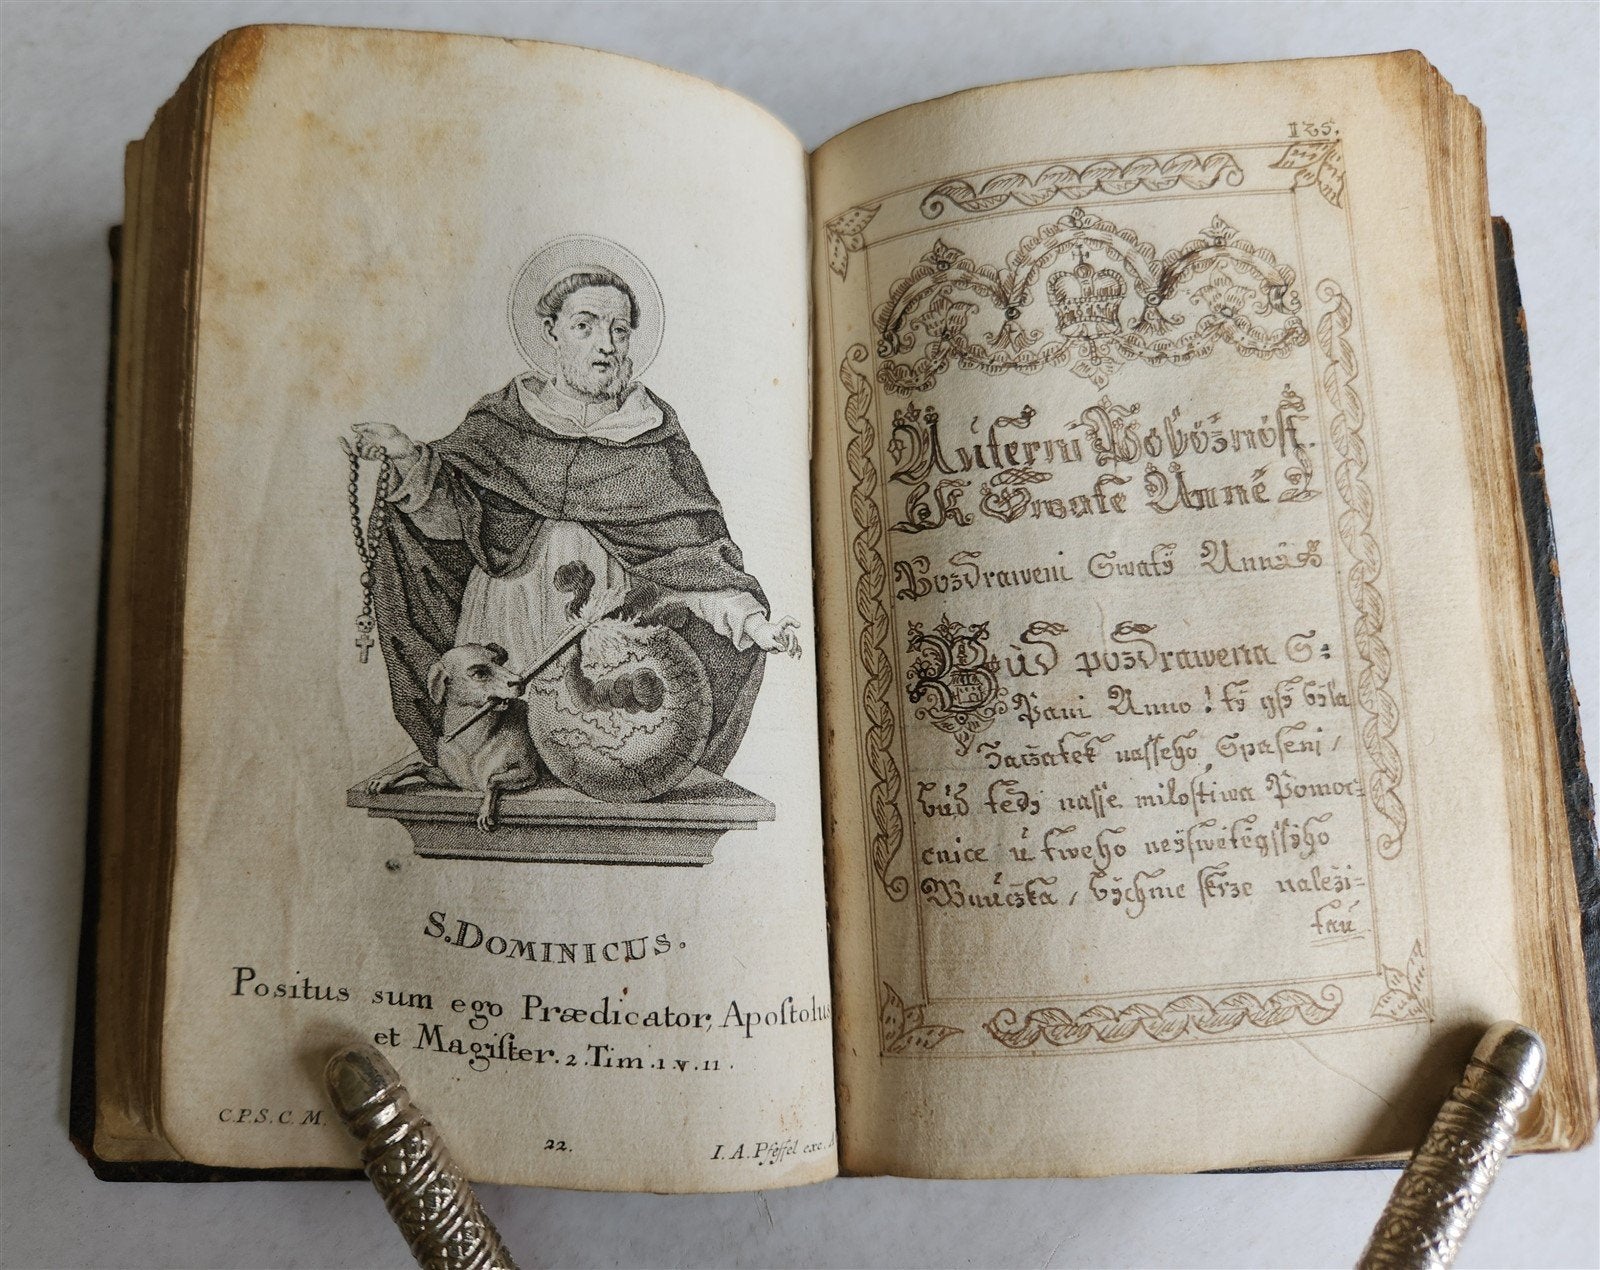 S. DOMINICUS.
Positus sum ego Prædicator, Apoſtolus
et Magiſter. 2. Tim. 1. v. 11.
C. P. S. C. M.
22.
I. A. Pfeffel exc.
125.
Auterni Pobožnoſt
K Swate Anně
Pozdraweni Swatÿ Annÿ
Bùd pozdrawena S:
Pani Anno! tÿ gſÿ bÿla
Začatek naſſeho Spaſeni,
bùd tedÿ naſſe miloſtiwa Pomoc=
cnice ù tweho neÿſwětěgſſÿho
Wnùčka, bÿchme ſkrze naleži=
taù